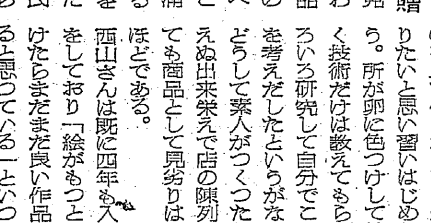 贈
りたいと思い習いはじめ
う。所が卵に色つけして
く技術だけは教えてもら
ろいろ研究して自分でこ
を考えだしたというがな
どうして素人がつくつた
えぬ出来栄えで店の陳列
ても商品として見劣りは
ほどである。
西山さんは既に四年も入
をしており「絵がもつと
けたらまだまだ良い作品
ると思つている」といつ